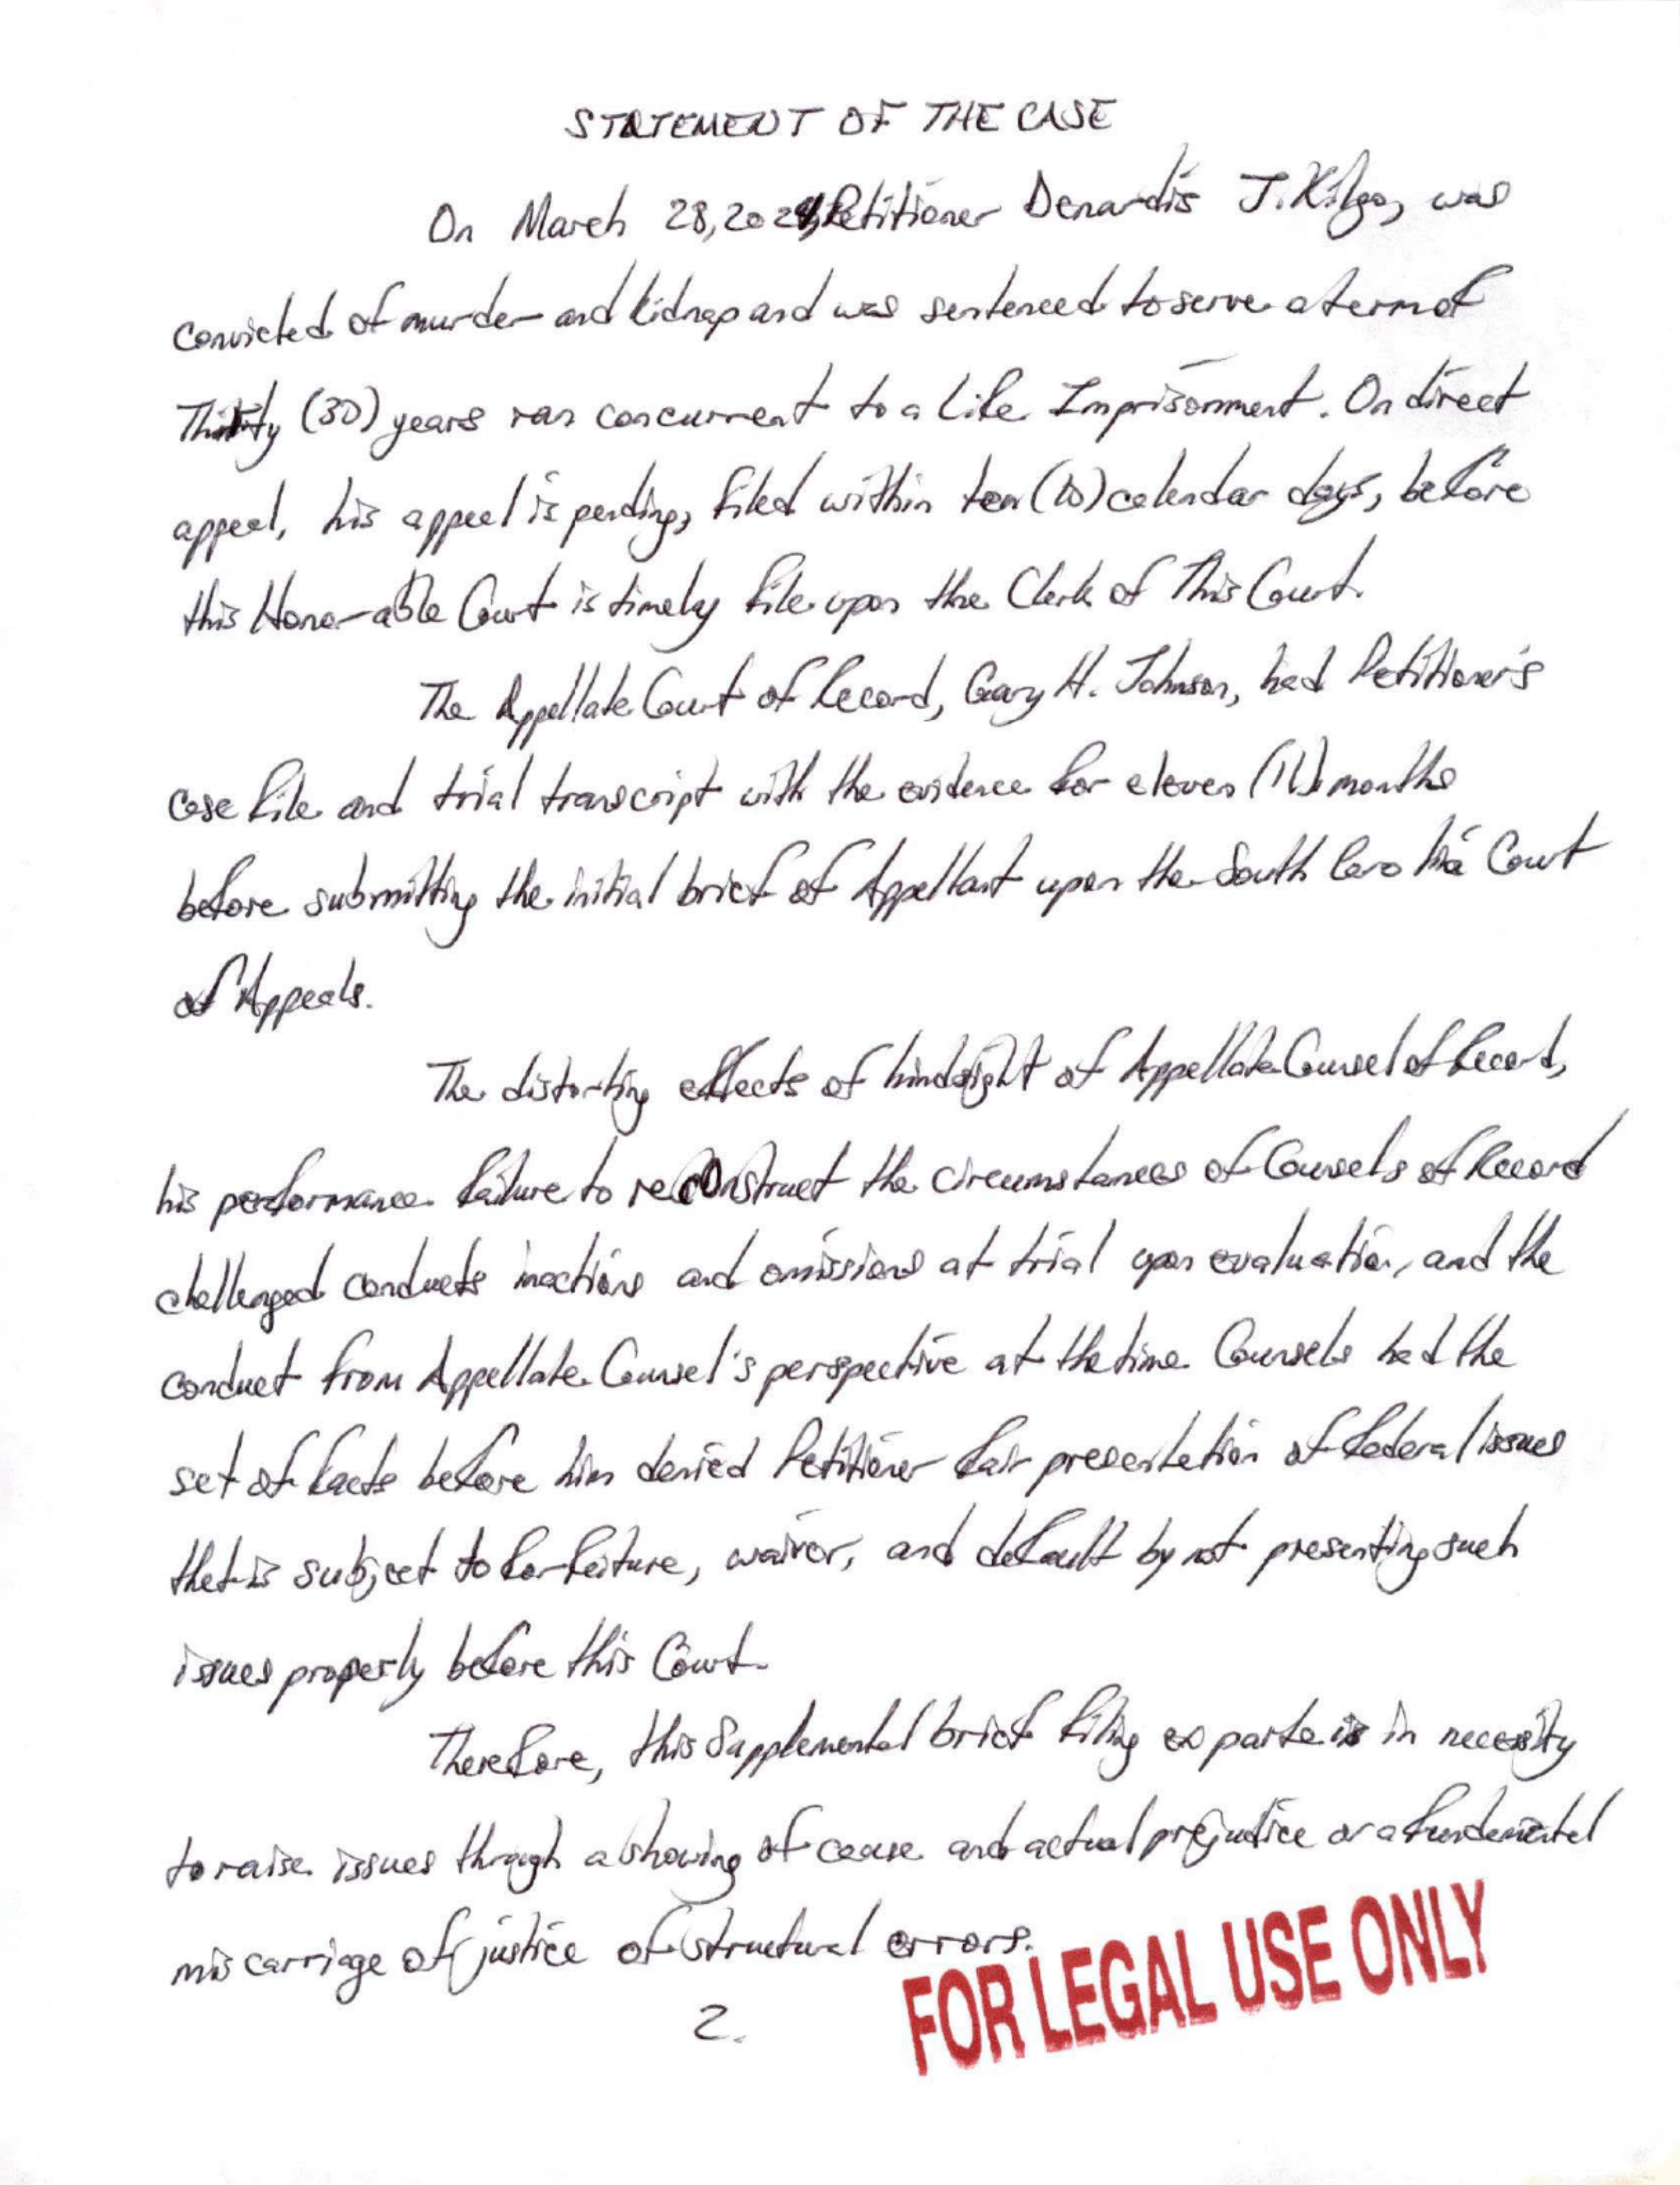 STATEMENT OF THE CASE
On March 28, 2024, Petitioner Denardis J. Kilgo, was
convicted of murder and kidnap and was sentenced to serve a term of
Thirty (30) years ran concurrent to a life Imprisonment. On direct
appeal, his appeal is pending, filed within ten (10) calendar days, before
this Honorable Court is timely file upon the Clerk of This Court.
The Appellate Court of Record, Gary H. Johnson, had Petitioner's
case file and trial transcript with the evidence for eleven (11) months
before submitting the initial brief of Appellant upon the South Carolina Court
of Appeals.
The distorting effects of hindsight of Appellate Counsel of Record,
his performance failure to reconstruct the circumstances of Counsels of Record
challenged conducts inactions and omissions at trial upon evaluation, and the
conduct from Appellate Counsel's perspective at the time Counsels had the
set of facts before him denied Petitioner fair presentation of federal issues
that is subject to forfeiture, waiver, and default by not presenting such
issues properly before this Court.
Therefore, this Supplemental brief filing ex parte is in necessity
to raise issues through a showing of cause and actual prejudice or a fundamental
miscarriage of justice of structural errors.
2.
FOR LEGAL USE ONLY